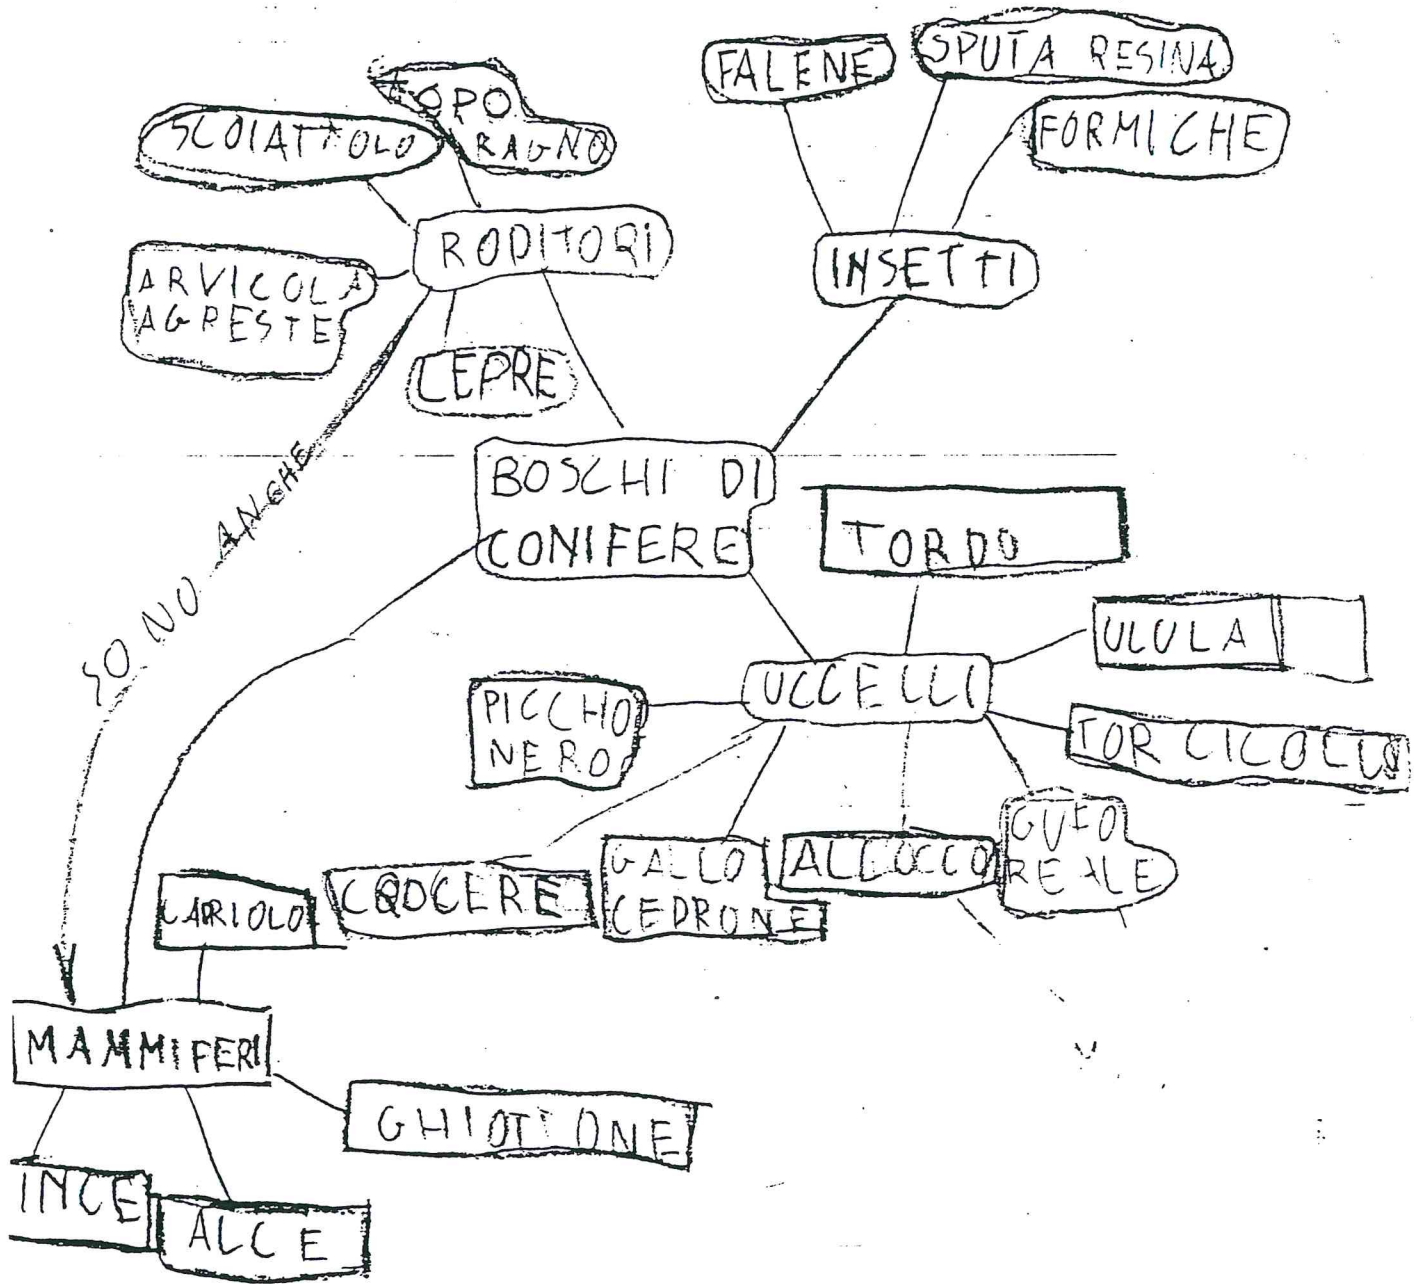 FALENE
SPUTA RESINA
TOPO
RAGNO
SCOIATTOLO
FORMICHE
RODITORI
INSETTI
ARVICOLA
AGRESTE
LEPRE
SONO ANCHE
BOSCHI DI
CONIFERE
TORDO
ULULA
UCCELLI
PICCHO
NERO
TORCICOLLO
GUFO
REALE
GALLO
CEDRONE
ALLOCCO
CROCERE
CAPRIOLO
MAMMIFERI
GHIOTTONE
INCE
ALCE